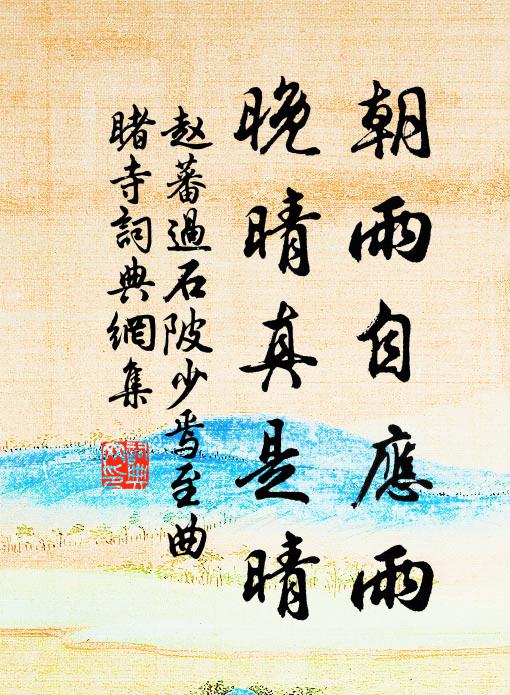 朝雨自應雨
晚晴真是晴
赵蕃過石陂少焉至曲
睹寺詞典網集